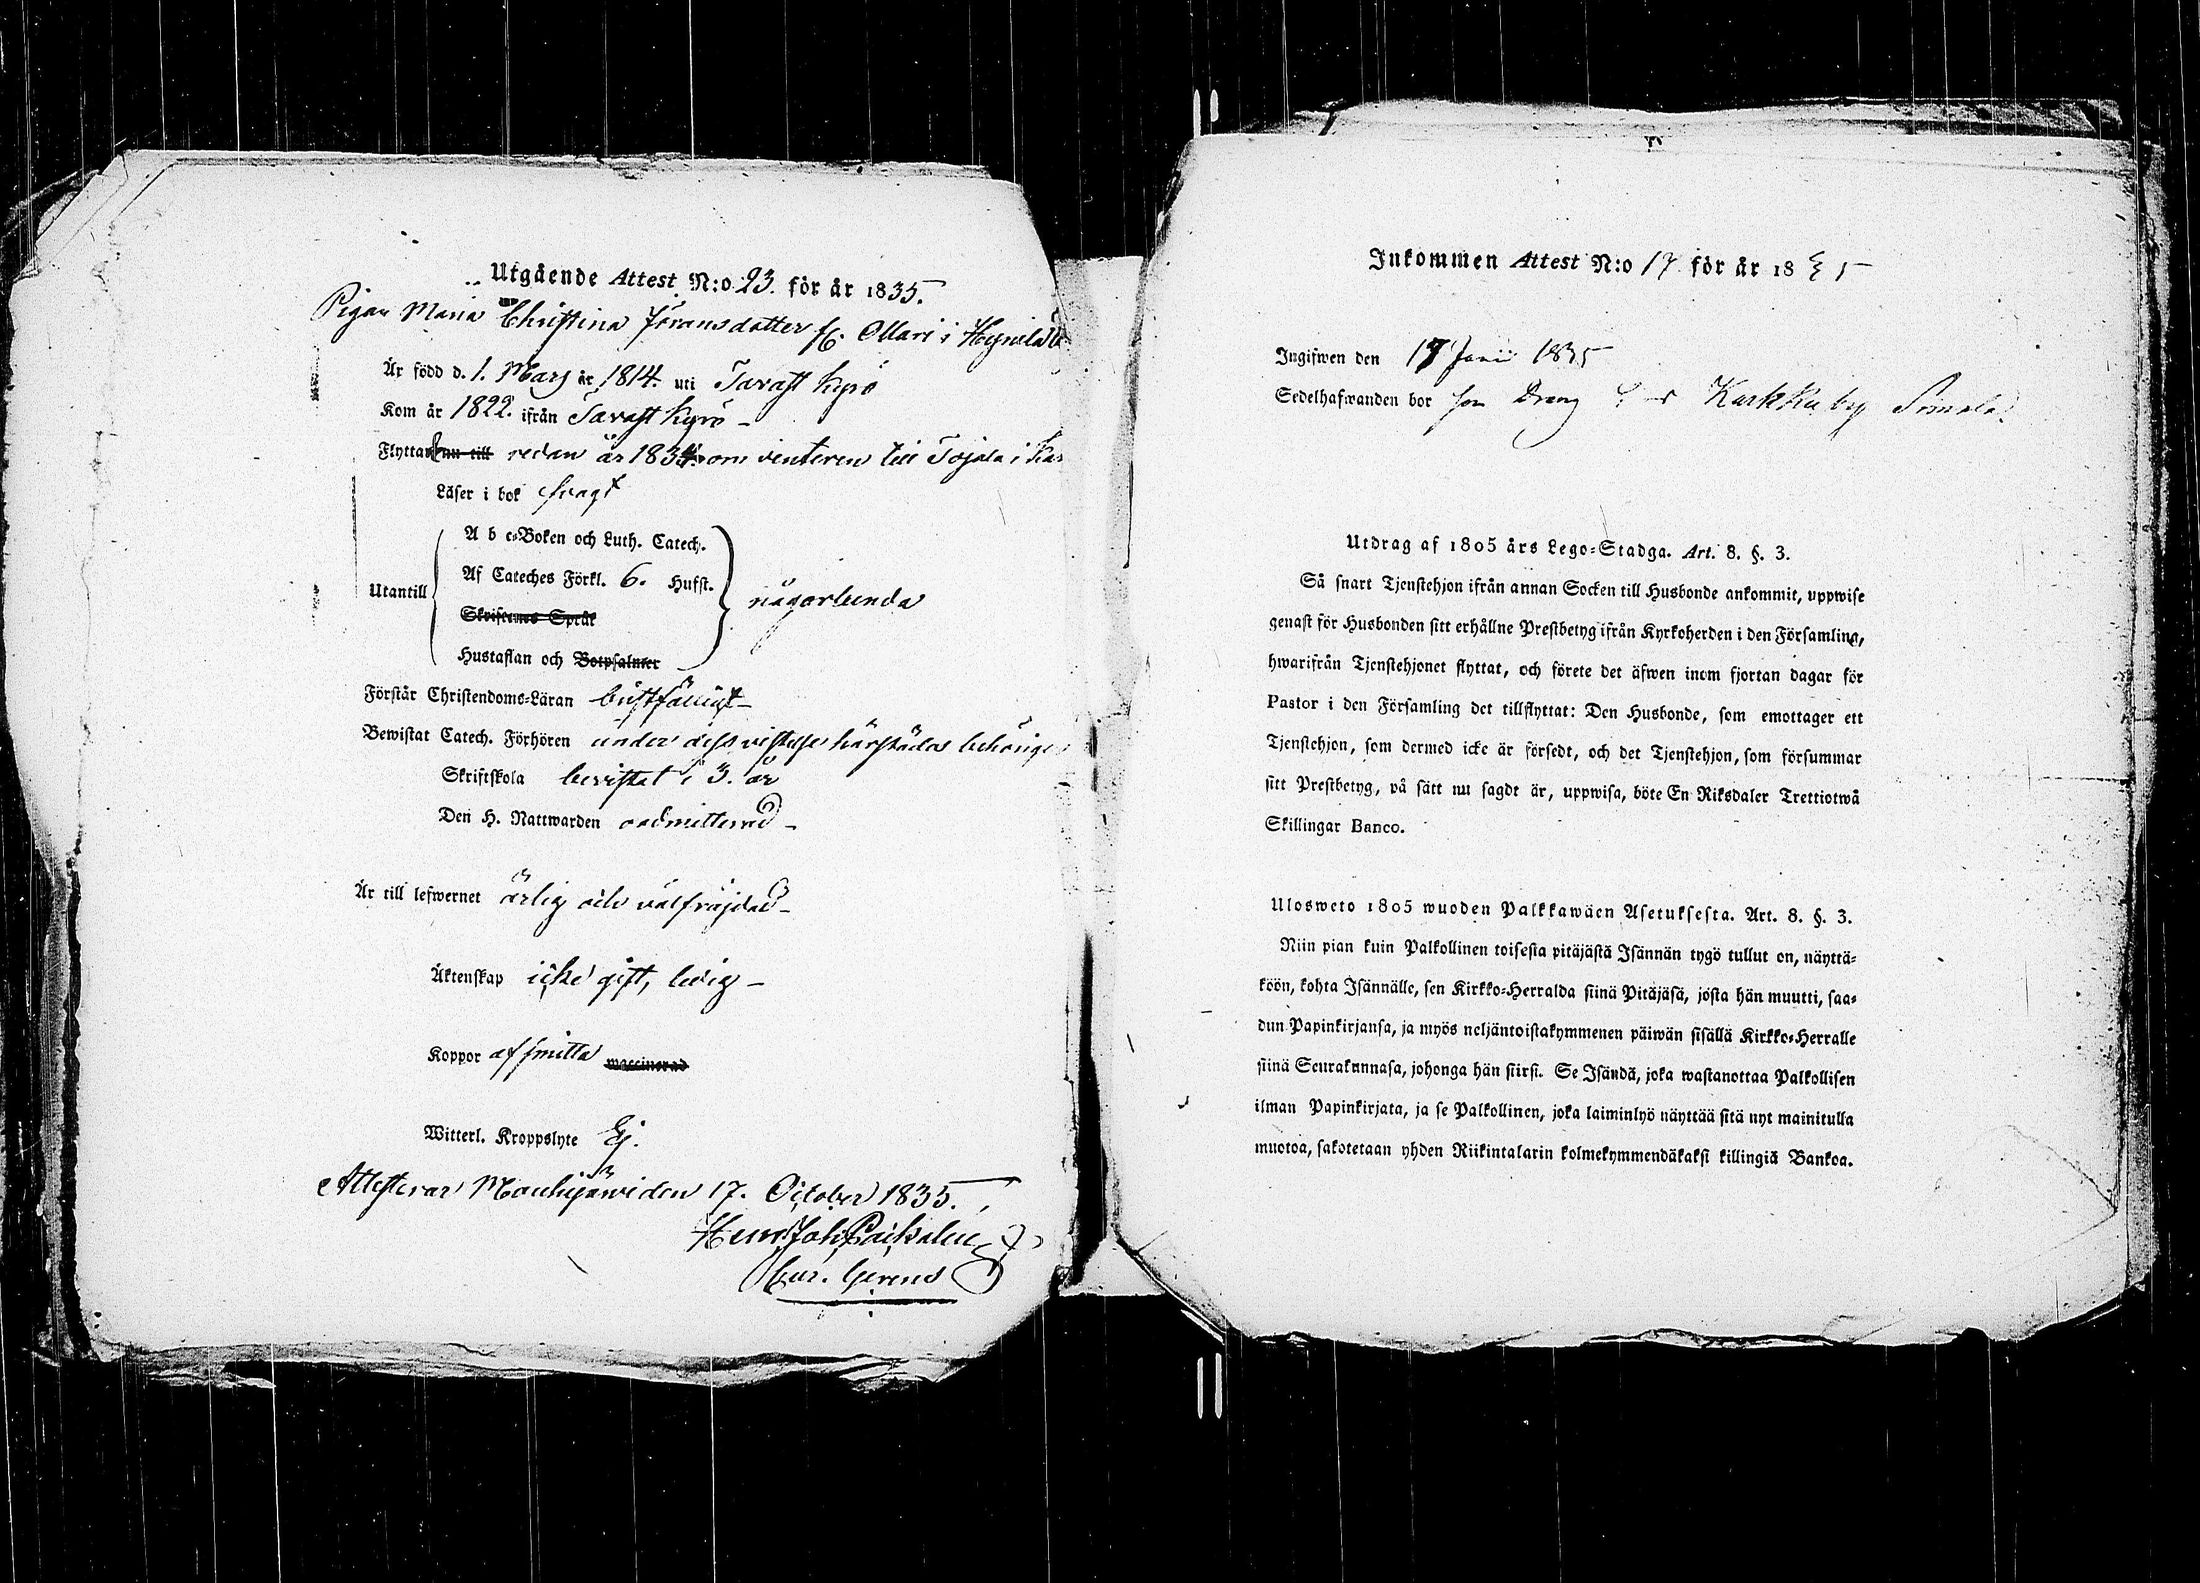 Utgående Attest N:o 23. för år 1835.
Pigan Maria Christina Jöransdotter fr. Ollari i Heinilä
Är född d. 1. Mars år 1814. uti Tavast Kyro
Kom år 1822. ifrån Tavast Kyrö –
Flyttar nu till redan år 1834 om vinteren till Tojala i Kar
Läser i bok svagt
A b c-Boken och Luth. Catech.
Af Cateches Förkl. 6. Hufst.
Utantill någorlunda
Skriftenes Språk
Hustaflan och Botpsalmer
Förstår Christendoms-Läran bristfälligt –
Bewistat Catech. Förhören under dess vistelse härstädes behörige
Skriftskola bevistat i 3. år
Den H. Nattwarden oadmitterad –
Är till lefwernet ärlig och välfräjdad –
Äktenskap icke gift, ledig –
Koppor afsmitta waccinerad
Witterl. Kroppslyte Ej.
Attesterar Mouhijärvi den 17. October 1835.
Henr. Joh.
Cur. Gerens
Inkommen Attest N:o 17 för år 1835
Ingifwen den 17 1835
Sedelhafwanden bor som Dräng Karkku by
Utdrag af 1805 års Lego-Stadga. Art. 8. §. 3.
Så snart Tjenstehjon ifrån annan Socken till Husbonde ankommit, uppwise
genast för Husbonden sitt erhållne Prestbetyg ifrån Kyrkoherden i den Församling,
hwarifrån Tjenstehjonet flyttat, och förete det äfwen inom fjortan dagar för
Pastor i den Församling det tillflyttat: Den Husbonde, som emottager ett
Tjenstehjon, som dermed icke är försedt, och det Tjenstehjon, som försummar
sitt Prestbetyg, på sätt nu sagdt är, uppwisa, böte En Riksdaler Trettiotwå
Skillingar Banco.
Ulosweto 1805 wuoden Palkkawäen Asetuksesta. Art. 8. §. 3.
Niin pian kuin Palkollinen toisesta pitäjästä Isännän tygö tullut on, näyttä-
köön, kohta Isännälle, sen Kirkko-Herralda siinä Pitäjäsä, josta hän muutti, saa-
dun Papinkirjansa, ja myös neljäntoistakymmenen päiwän sisällä Kirkko-Herralle
siinä Seurakunnasa, johonga hän siirsi. Se Isändä, joka wastanottaa Palkollisen
ilman Papinkirjata, ja se Palkollinen, joka laiminlyö näyttää sitä nyt mainitulla
muotoa, sakotetaan yhden Riikintalarin kolmekymmendäkaksi killingiä Bankoa.